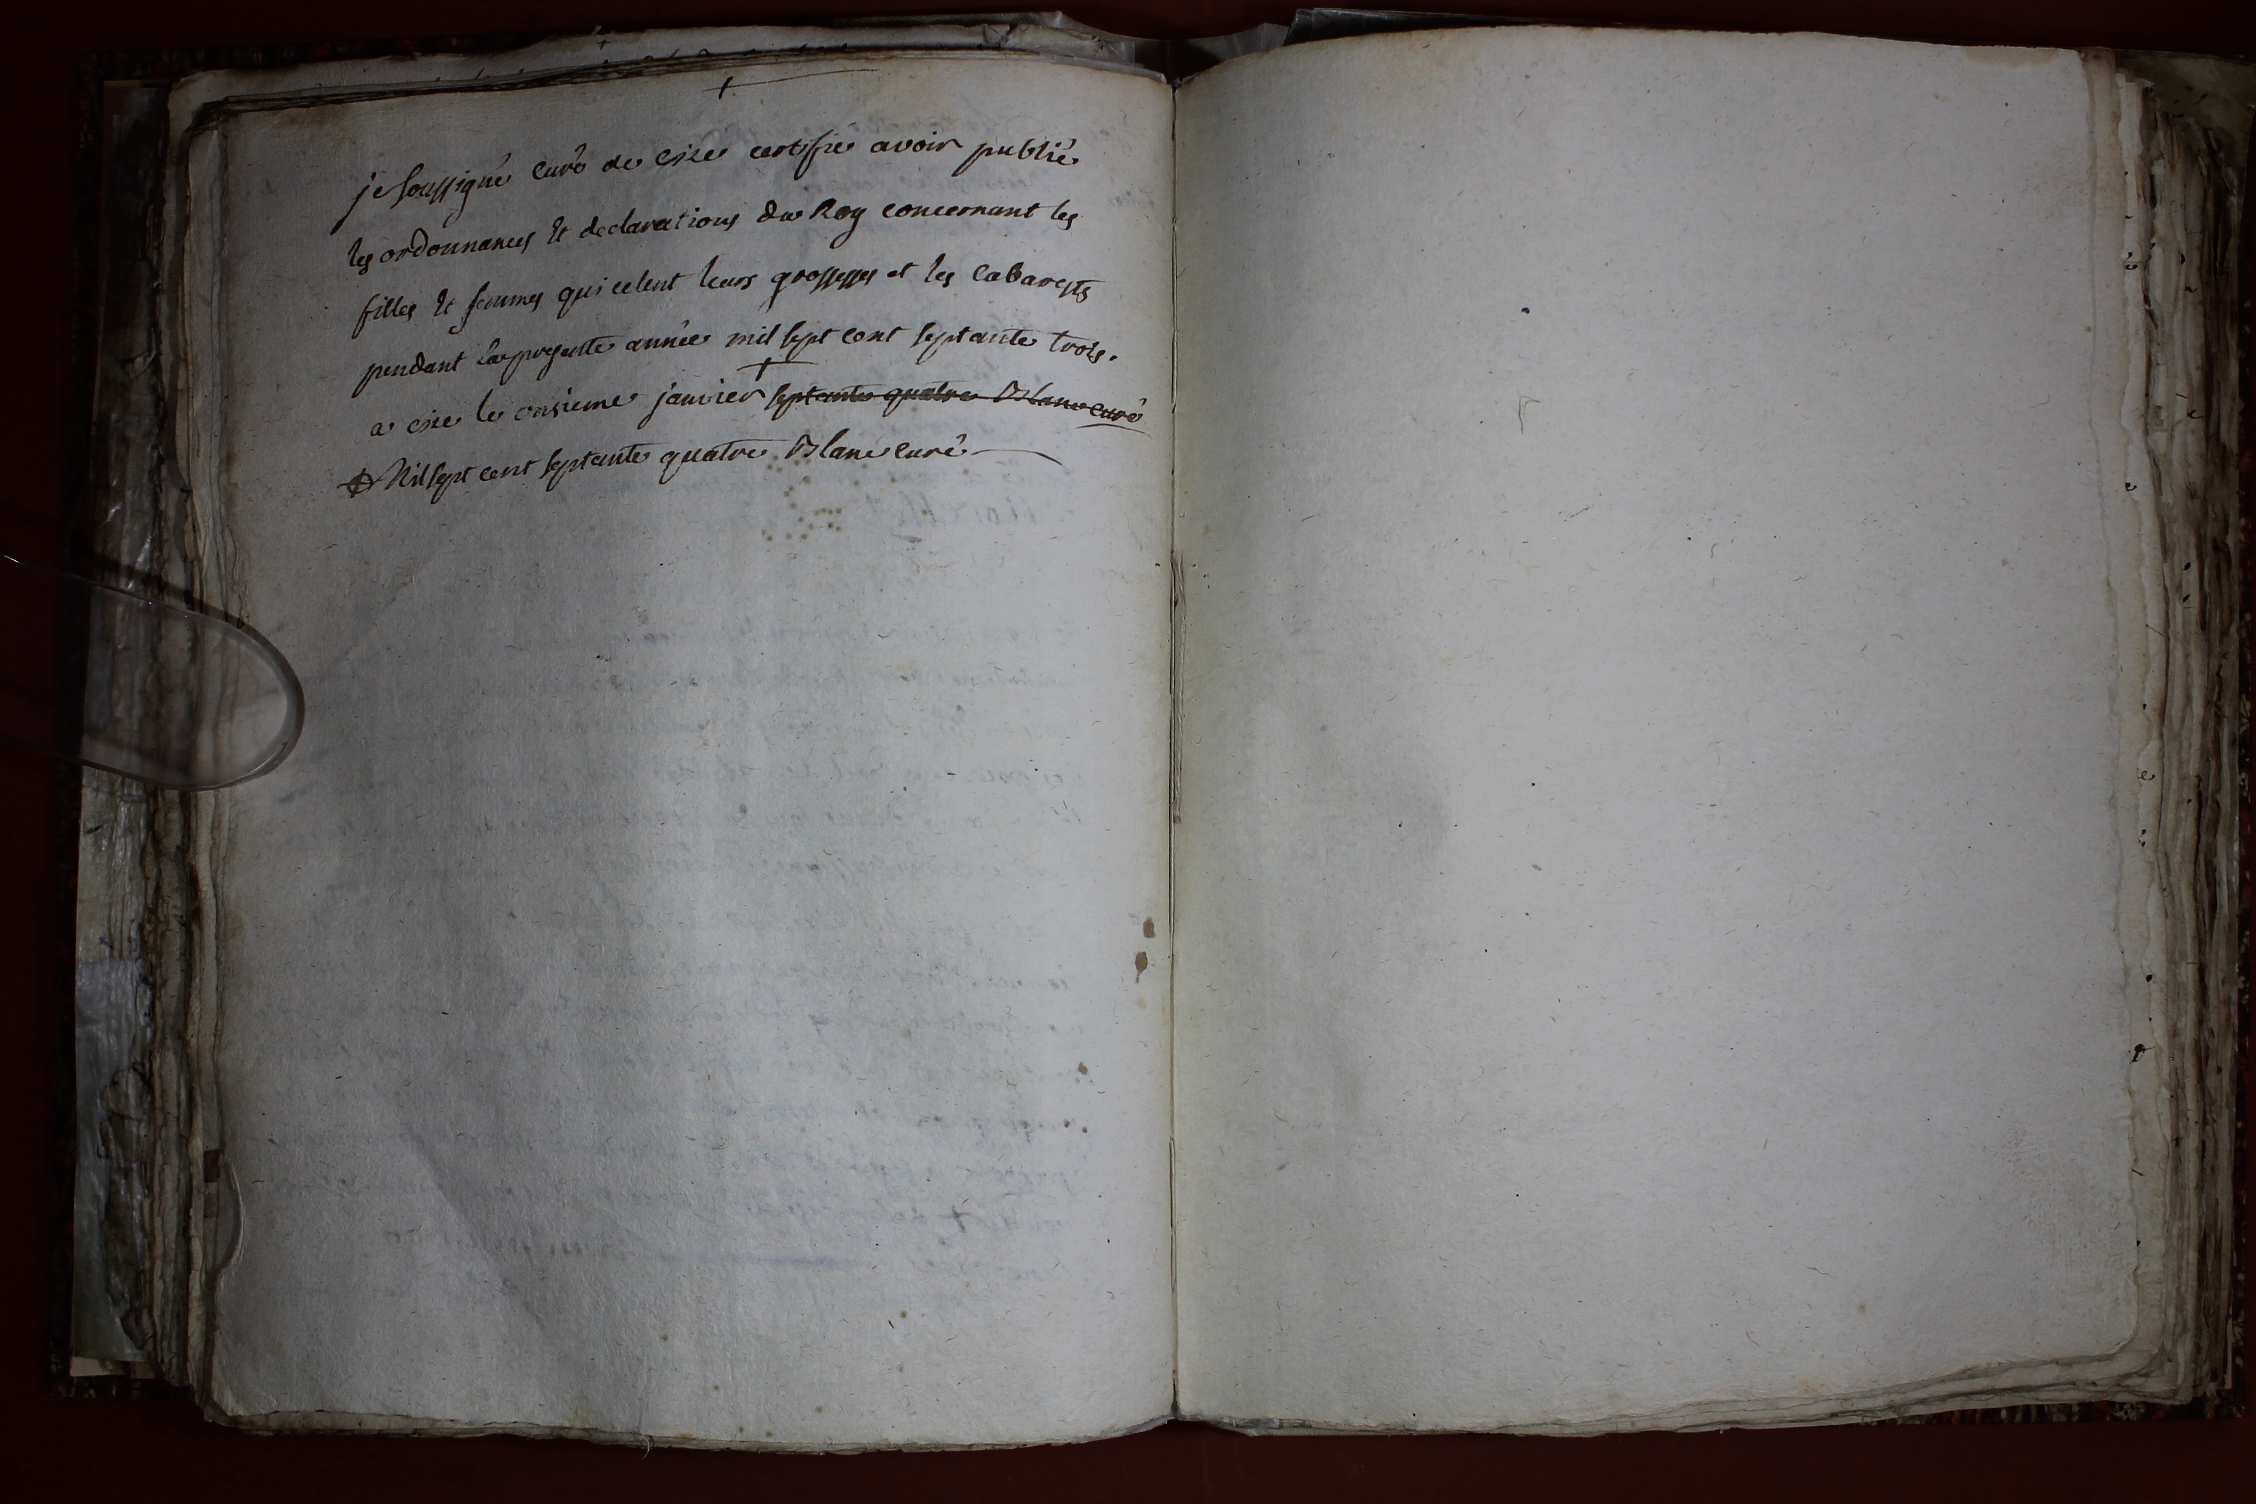 je soussigné curé de cize certifie avoir publié
les ordonnances et declarations du Roy concernant les
filles et femmes qui celent leurs grossesses et les cabarests
pendant la presente année mil sept cent septante trois.
a cize le onsieme janvier septante quatre Blanc curé
Mil sept cent septante quatre Blanc curé